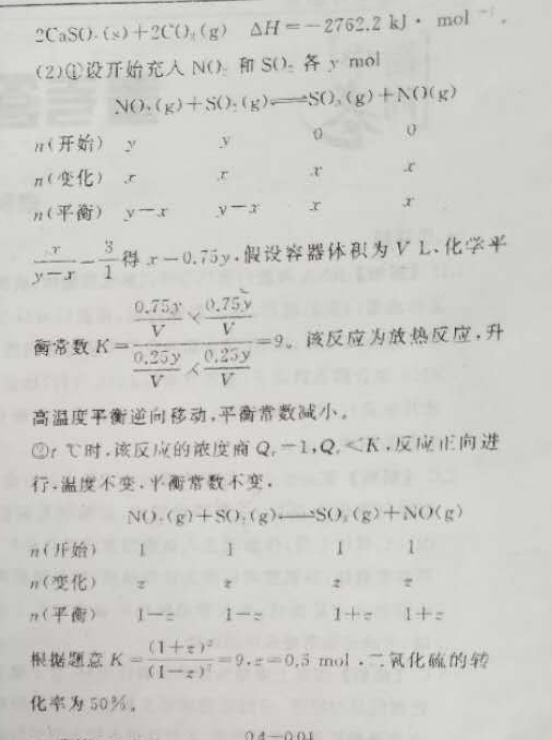 2CaSO₄(s)+2CO₂(g) ΔH=-2762.2 kJ·mol⁻¹。
(2)①设开始充入 NO₂ 和 SO₂ 各 y mol
NO₂(g)+SO₂(g)⇌SO₃(g)+NO(g)
n(开始) y y 0 0
n(变化) x x x x
n(平衡) y-x y-x x x
x/(y-x)=3/1 得 x=0.75y,假设容器体积为 V L,化学平
衡常数 K=(0.75y/V×0.75y/V)/(0.25y/V×0.25y/V)=9。该反应为放热反应,升
高温度平衡逆向移动,平衡常数减小。
②t ℃时,该反应的浓度商 Qc=1,Qc<K,反应正向进
行,温度不变,平衡常数不变,
NO₂(g)+SO₂(g)⇌SO₃(g)+NO(g)
n(开始) 1 1 1 1
n(变化) z z z z
n(平衡) 1-z 1-z 1+z 1+z
根据题意 K=(1+z)²/(1-z)²=9,z=0.5 mol,二氧化硫的转
化率为 50%。